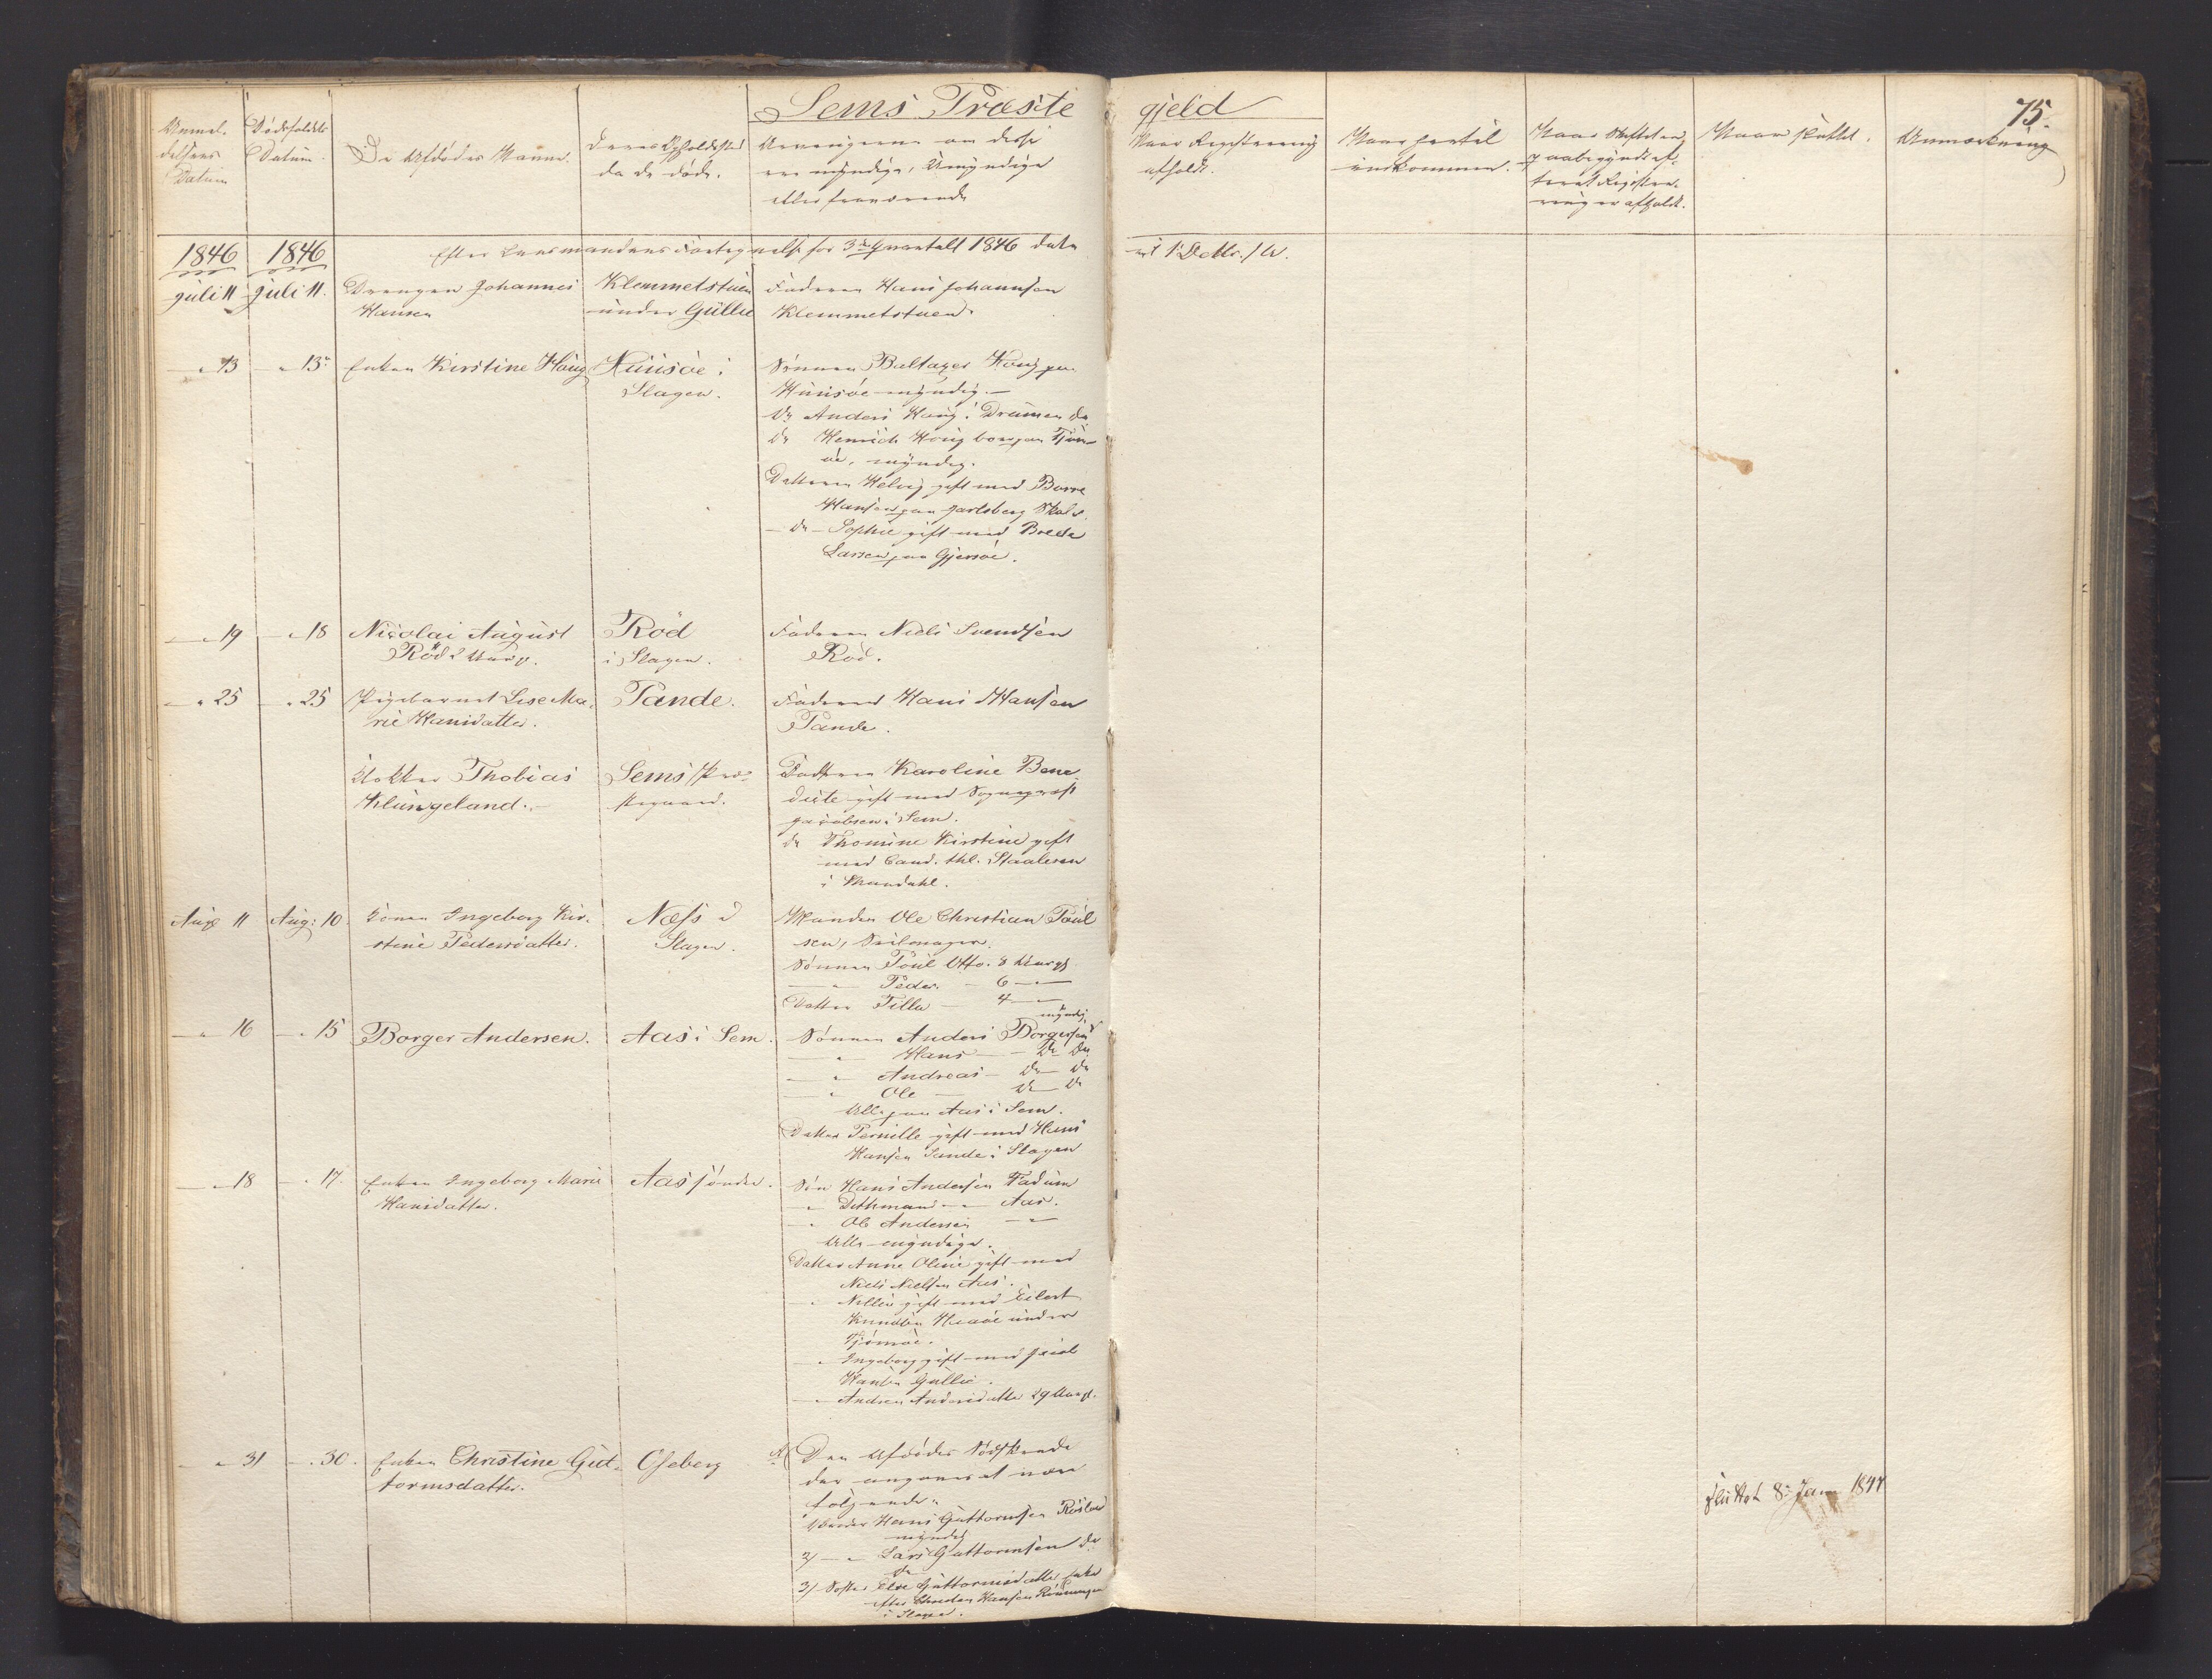 Sems Præste gjeld
75.
Anmel-
delsens
Datum
Dødsfaldets
Datum.
De Afdødes Navne.
Deres Opholdssted
da de døde.
Arvingerne om disse
ere myndige, Umyndige
eller fraværende
Naar Registrering
afholdt.
Naar hertil
indkommen.
Naar sluttet.
Anmærkning
1846 1846 Efter Lensmandens Fortegnelse for 3de Qvartal 1846 dateret 1 Octbr. s/A.
Juli 11 Juli 11. Drengen Johannes
Hansen
Klemmetstuen
under Gullie
Faderen Hans Johannsen
Klemmetstuen.
" 13 " 13. Enken Kirstine Houg
Huusøe i
Slagen.
Sønnen Baltazer Houg paa
Huusøe myndig.
Do Anders Houg i Dramen do
Do Henrich Houg boer paa Tjøm-
øe, myndig.
Datteren Helvig gift med Borre
Hansen paa Jarlsberg
Do Sophie gift med Boede
Larsen paa Gjersøe.
" 19 " 18 Nicolai August
Rød 2 Aar g.
Rød
i Slagen.
Faderen Niels Svendsen
Rød.
" 25 " 25 Pigebarnet Lise Ma-
rie Hansdatter.
Tande.
Faderen Hans Hansen
Tande.
Klokker Thobias
Klungeland.
Sems Præ-
stegaard.
Datteren Karoline Bene-
dicte gift med Sognepræst
Jacobsen i Sem.
do Thomine Kirstine gift
med Cand. thl. Staalesen
i Mandahl.
Aug 11 Aug: 10 Konen Ingeborg Kir-
stine Pedersdatter.
Næss i
Slagen.
Manden Ole Christian Poul
sen, Seilmager.
Sønnen Poul Otto. 8 Aar gl
" Peder. - 6 - "
Datter Tilla - 4 - "
" 16 " 15. Borger Andersen.
Aas i Sem.
Sønnen Anders Borgersen myndig
" Hans - Do Do
" Andreas - Do Do
" Ole Do Do
Alle paa Aas i Sem.
Datter Pernille gift med Hans
Hansen Sande i Slagen
" 18 " 17. Enken Ingeborg Marie
Hansdatter.
Aas søndre.
Søn Hans Andersen Fadum
" Dethman " " Aas.
" Ole Andersen "
Alle myndige.
Datter Anne Oline gift med
Niels Nielsen Aas.
" Nillie gift med Eilert
Knudsen under
Tjømøe.
" Ingeborg gift med Jacob
Hansen Gullie.
" Andrea Andersdatter 29 Aar gl.
" 31 " 30. Enken Christine Gut-
tormsdatter.
Oseberg
Den Afdødes Sødskende
der angives at være
følgende:
Broder Hans Guttormsen
myndig
2) " Lars Guttormsen do
do
3) Søster Else Guttormsdatter Enke
efter Christen Hansen
i Slagen.
sluttet 8: Jan 1847